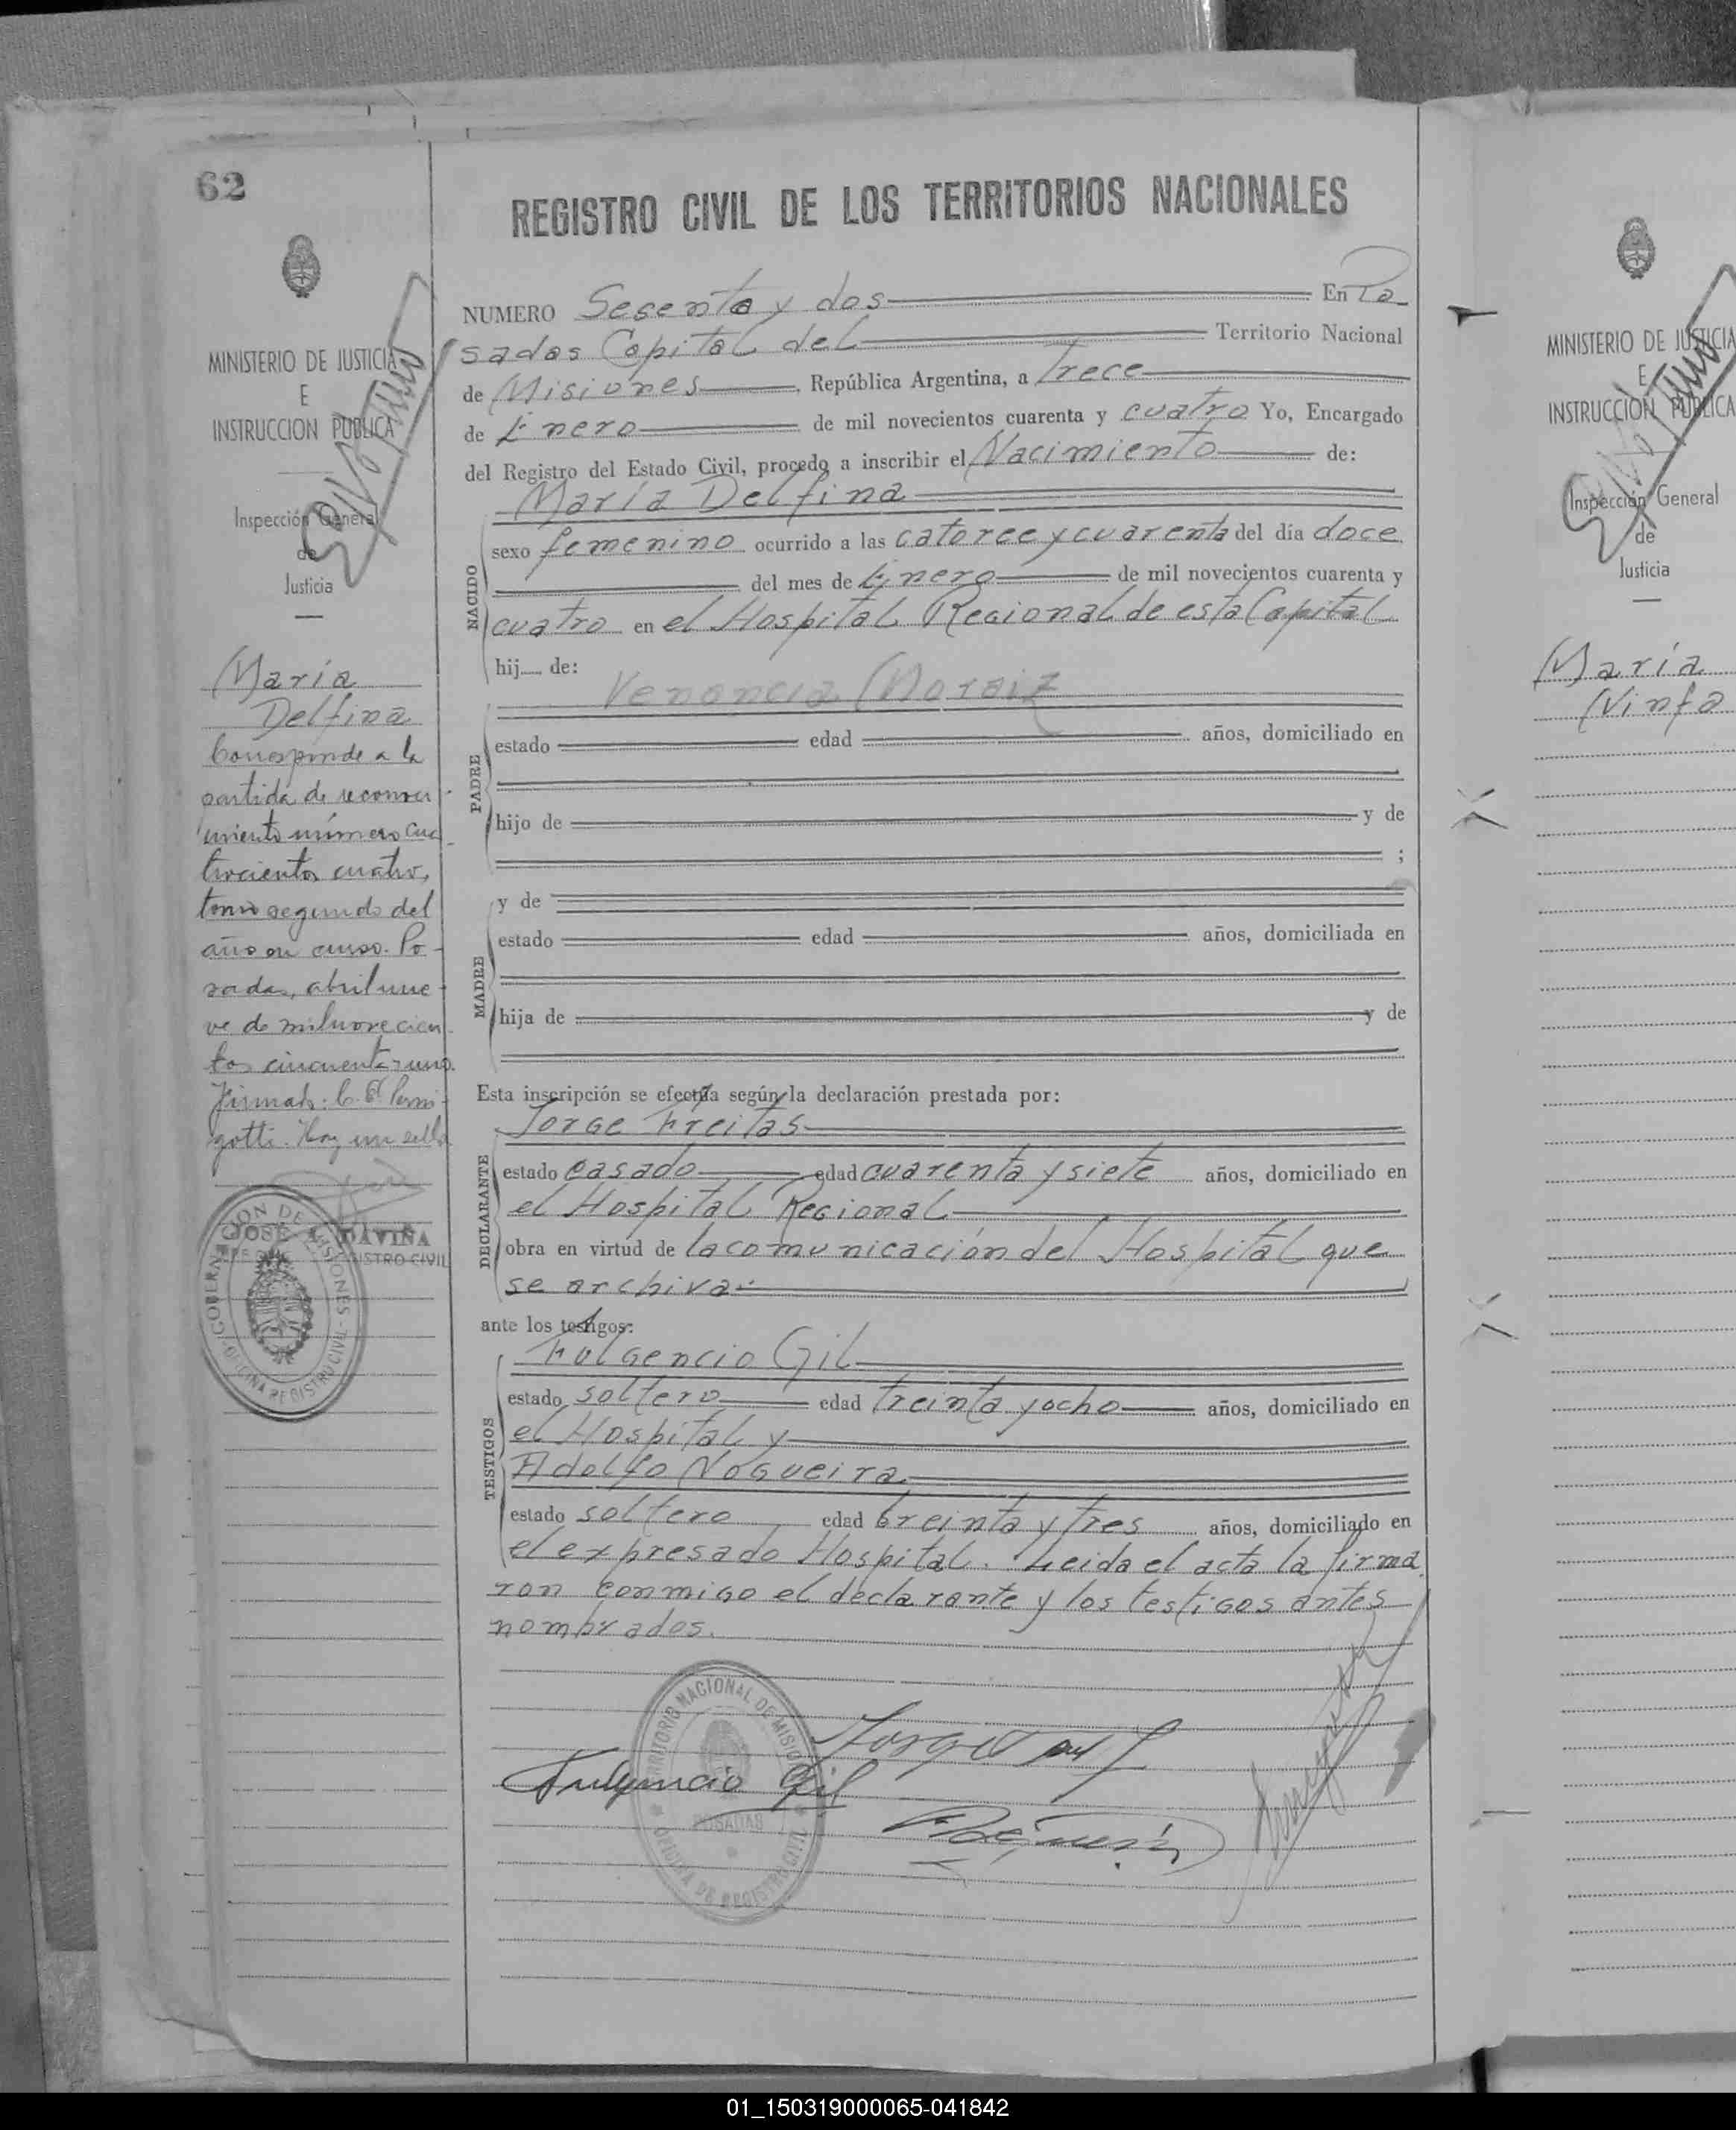 62
REGISTRO CIVIL DE LOS TERRITORIOS NACIONALES
NUMERO Sesenta y dos En Po
sadas Capital del Territorio Nacional
de Misiones, República Argentina, a Trece
de Enero de mil novecientos cuarenta y cuatro Yo, Encargado
del Registro del Estado Civil, procedo a inscribir el Nacimiento de:
María Delfina
NACIDO
sexo femenino ocurrido a las catorce y cuarenta del día doce
del mes de Enero de mil novecientos cuarenta y
cuatro en el Hospital Regional de esta Capital
hij... de:
Venancia
PADRE
estado edad años, domiciliado en
hijo de y de
;
y de
MADRE
estado edad años, domiciliada en
hija de y de
Esta inscripción se efectúa según la declaración prestada por:
Jorge Freitas
DECLARANTE
estado casado edad cuarenta y siete años, domiciliado en
el Hospital Regional
obra en virtud de la comunicación del Hospital que
se archiva.
ante los testigos:
Fulgencio Gil
TESTIGOS
estado soltero edad treinta y ocho años, domiciliado en
el Hospital y
Adolfo Nogueira
estado soltero edad treinta y tres años, domiciliado en
el expresado Hospital. Leida el acta la firma
ron conmigo el declarante y los testigos antes
nombrados.
Fulgencio Gil
TERRITORIO NACIONAL DE MISIONES
POSADAS
OFICINA DE REGISTRO CIVIL
MINISTERIO DE JUSTICIA
E
INSTRUCCION PUBLICA
Inspección General
de
Justicia
María
Delfina
Corresponde a la
partida de reconoci
miento número cua
trocientos cuatro,
tomo segundo del
año en curso. Po-
sadas, abril nue-
ve de mil novecien-
tos cincuenta y uno.
Firmado: C. E.
gotti. Hay un sello
JOSE A. DAVIÑA
REGISTRO CIVIL
GOBERNACION DE MISIONES
OFICINA REGISTRO CIVIL
MINISTERIO DE JUSTICIA
E
INSTRUCCION PUBLICA
Inspección General
de
Justicia
María
Ninfa
01_150319000065-041842